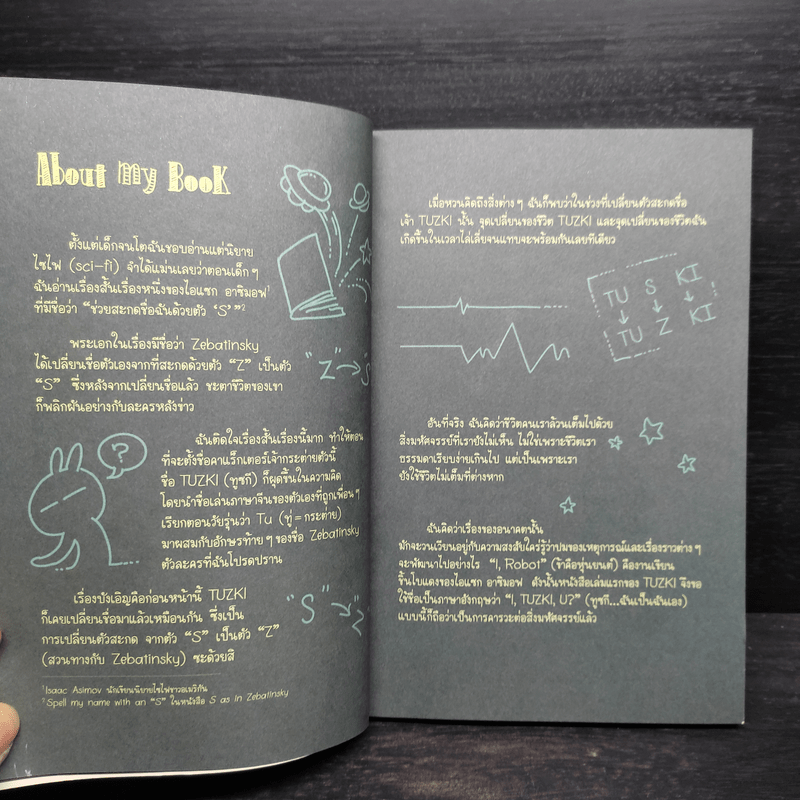 About my Book
ตั้งแต่เด็กจนโตฉันชอบอ่านแต่นิยาย
ไซไฟ (sci-fi) จำได้แม่นเลยว่าตอนเด็กๆ
ฉันอ่านเรื่องสั้นเรื่องหนึ่งของไอแซก อาซิมอฟ¹
ที่มีชื่อว่า “ช่วยสะกดชื่อฉันด้วยตัว ‘S’”²
พระเอกในเรื่องมีชื่อว่า Zebatinsky
ได้เปลี่ยนชื่อตัวเองจากที่สะกดด้วยตัว “Z” เป็นตัว
“S” ซึ่งหลังจากเปลี่ยนชื่อแล้ว ชะตาชีวิตของเขา
ก็พลิกผันอย่างกับละครหลังข่าว
"Z" → "S
ฉันติดใจเรื่องสั้นเรื่องนี้มาก ทำให้ตอน
ที่จะตั้งชื่อคาแร็กเตอร์เจ้ากระต่ายตัวนี้
ชื่อ TUZKI (ทูซกี) ก็ผุดขึ้นในความคิด
โดยนำชื่อเล่นภาษาจีนของตัวเองที่ถูกเพื่อนๆ
เรียกตอนวัยรุ่นว่า Tu (ทู่ = กระต่าย)
มาผสมกับอักษรท้ายๆ ของชื่อ Zebatinsky
ตัวละครที่ฉันโปรดปราน
?
เรื่องบังเอิญคือก่อนหน้านี้ TUZKI
ก็เคยเปลี่ยนชื่อมาแล้วเหมือนกัน ซึ่งเป็น
การเปลี่ยนตัวสะกด จากตัว “S” เป็นตัว “Z”
(สวนทางกับ Zebatinsky) ซะด้วยสิ
"S" → "Z
¹Isaac Asimov นักเขียนนิยายไซไฟชาวอเมริกัน
²Spell my name with an “S” ในหนังสือ S as in Zebatinsky
เมื่อหวนคิดถึงสิ่งต่างๆ ฉันก็พบว่าในช่วงที่เปลี่ยนตัวสะกดชื่อ
เจ้า TUZKI นั้น จุดเปลี่ยนของชีวิต TUZKI และจุดเปลี่ยนของชีวิตฉัน
เกิดขึ้นในเวลาไล่เลี่ยจนแทบจะพร้อมกันเลยทีเดียว
TU S KI
↓ ↓ ↓
TU Z KI
อันที่จริง ฉันคิดว่าชีวิตคนเราล้วนเต็มไปด้วย
สิ่งมหัศจรรย์ที่เรายังไม่เห็น ไม่ใช่เพราะชีวิตเรา
ธรรมดาเรียบง่ายเกินไป แต่เป็นเพราะเรา
ยังใช้ชีวิตไม่เต็มที่ต่างหาก
ฉันคิดว่าเรื่องของอนาคตนั้น
มักจะวนเวียนอยู่กับความสงสัยใคร่รู้ว่าปมของเหตุการณ์และเรื่องราวต่างๆ
จะพัฒนาไปอย่างไร “I, Robot” (ข้าคือหุ่นยนต์) คืองานเขียน
ชิ้นโบแดงของไอแซก อาซิมอฟ ดังนั้นหนังสือเล่มแรกของ TUZKI จึงขอ
ใช้ชื่อเป็นภาษาอังกฤษว่า “I, TUZKI, U?” (ทูซกี...ฉันเป็นฉันเอง)
แบบนี้ก็ถือว่าเป็นการคารวะต่อสิ่งมหัศจรรย์แล้ว